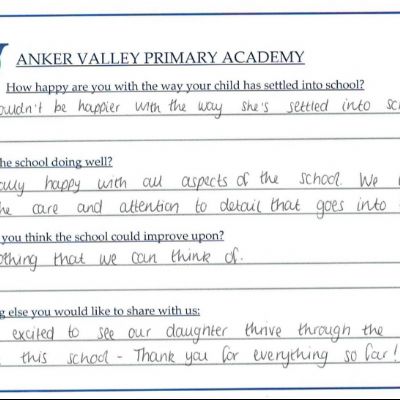 ANKER VALLEY PRIMARY ACADEMY
How happy are you with the way your child has settled into school?
ouldn't be happier with the way she's settled into sc
he school doing well?
happy with all aspects of the school. We
he care and attention to detail that goes into
you think the school could improve upon?
othing that we can think of.
g else you would like to share with us:
excited to see our daughter thrive through the
this school - Thank you for everything so far!